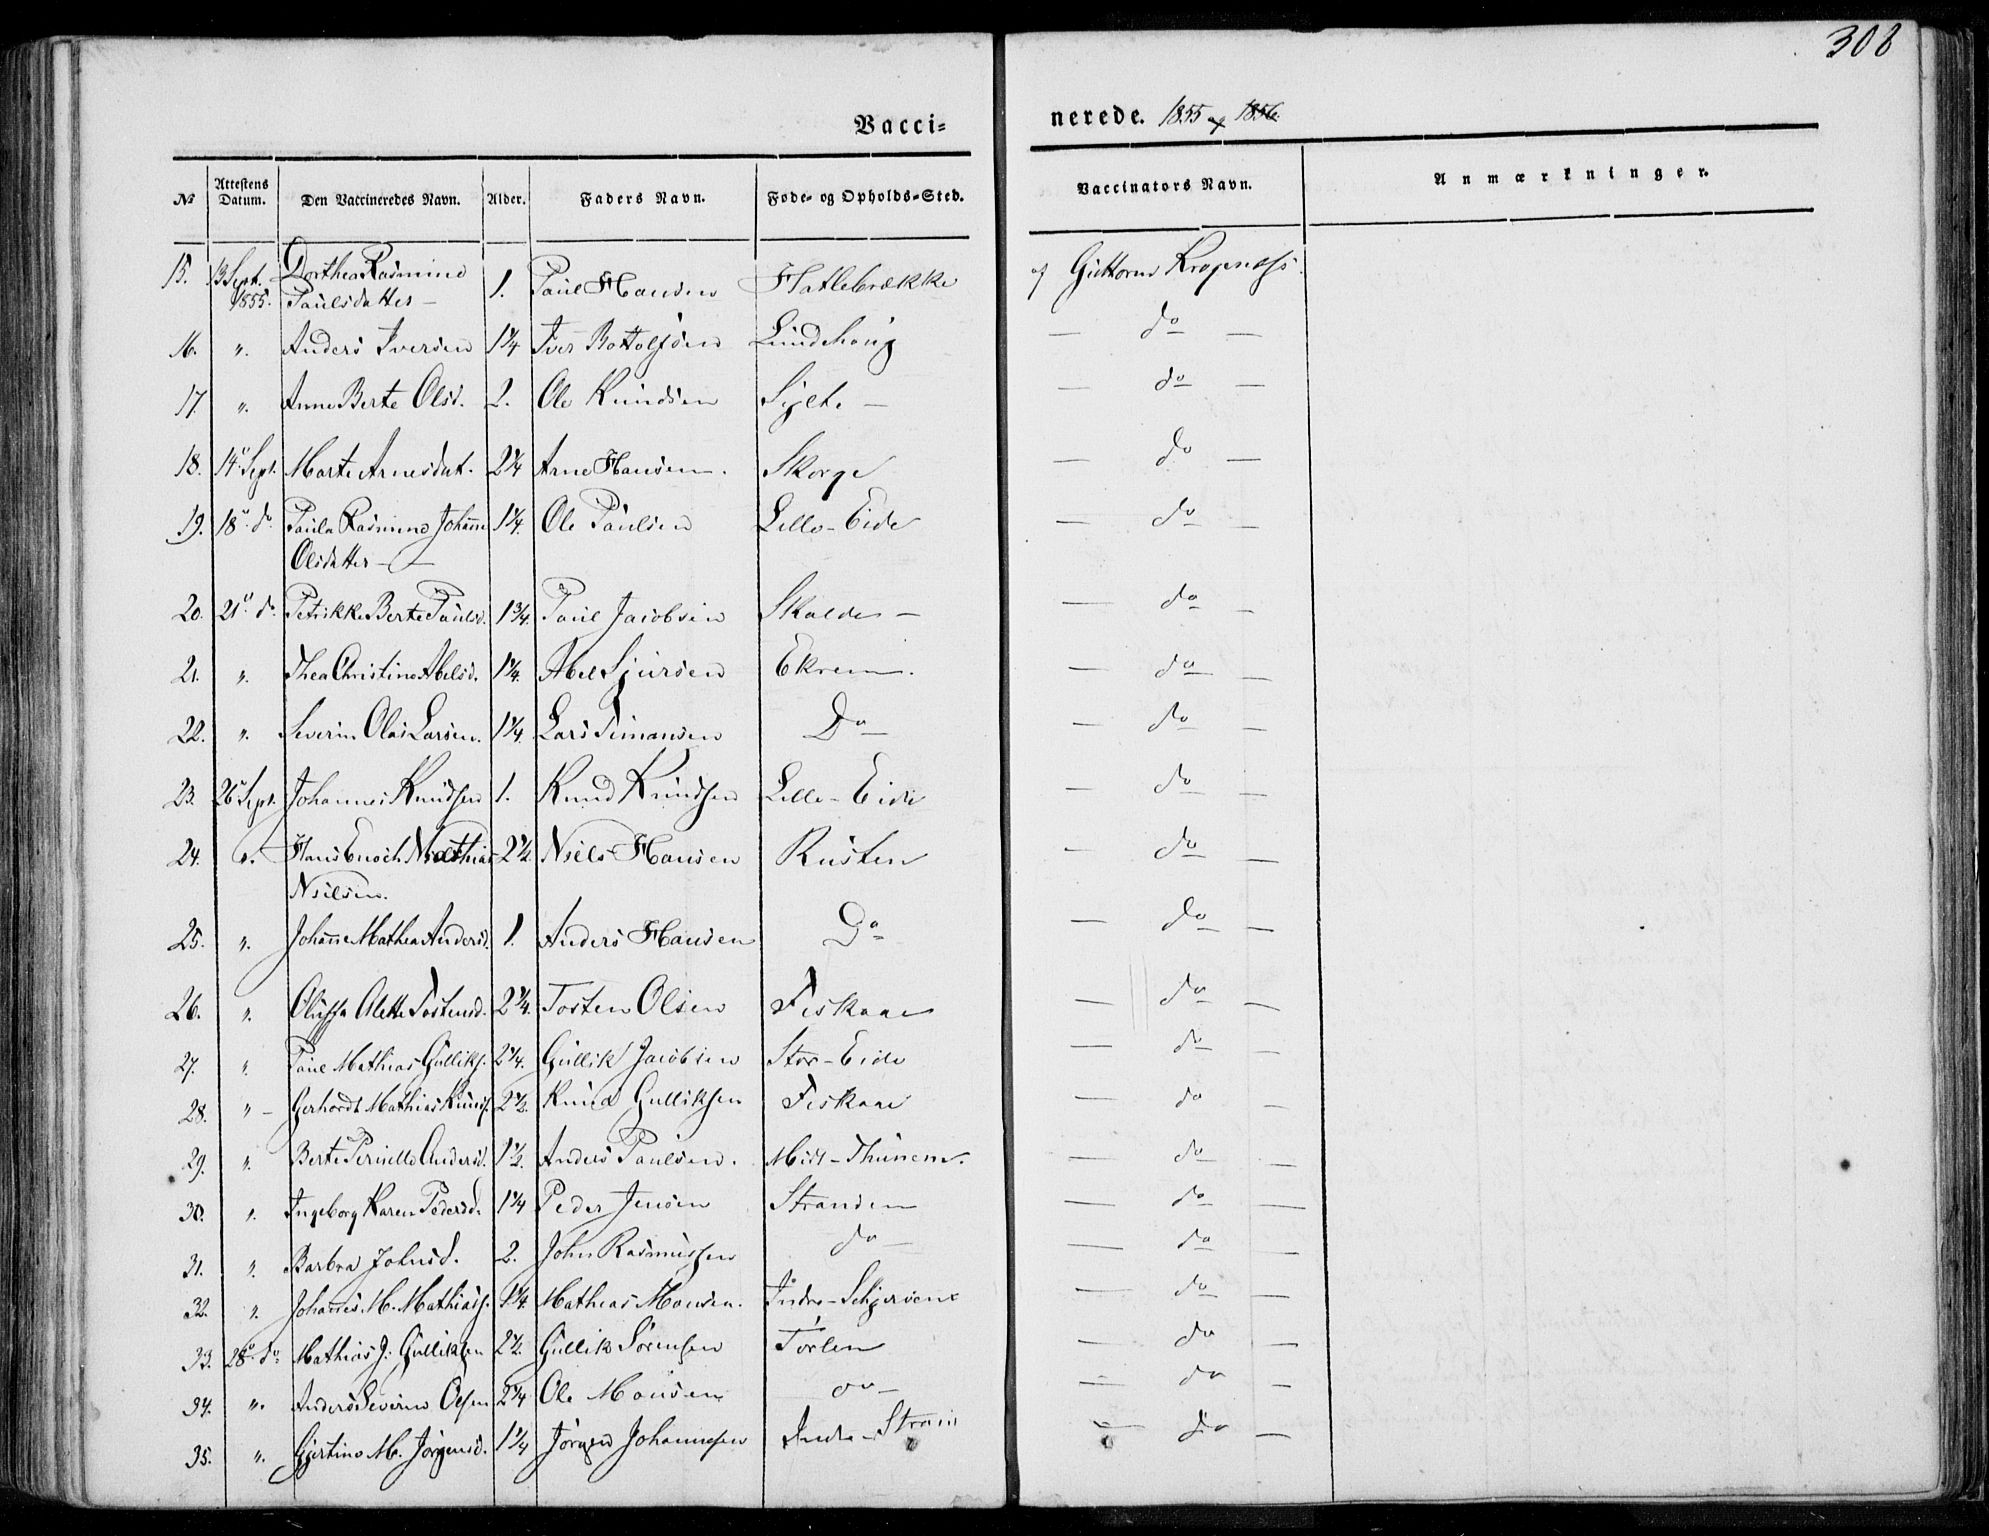 308
Vacci- nerede. 1855 og 1856.
No Attestens Datum. Den Vaccineredes Navn. Alder. Faders Navn. Føde- og Opholds-Sted. Vaccinators Navn. Anmærkninger.
15. 13 Sept. 1855. Dorthea Rasmine 1. Paul Hansen Hatlebrække af Guttorm Kragenæs.
Paulsdatter —
16. ". Anders Iversen 1¼ Iver Bottolfsen Lindehoug — do —
17. ". Anne Berte Olsd. 2. Ole Knudsen Sylte — — do —
18. 14 Sept. Marte Arnesdat. 2¼ Arne Hansen. Skorge — do —
19. 18 do Paula Rasmine Johanne 1¼. Ole Paulsen Lille-Eide — do —
Olsdatter —
20. 21 do Petrikke Berte Paulsd. 1¾. Paul Jacobsen Skalde — — do —
21. ". Thea Christine Abelsd. 1¼. Abel Sjursen Ekrem. — do —
22. ". Severin Olai Larsen. 1¼. Lars Simonsen Do — do —
23. 26 Sept. Johannes Knudsen 1. Knud Knudsen Lille-Eide — do —
24. ". Hans Enoch Mathias 2½ Niels Hansen Rusten — do —
Nielsen.
25. ". Johanne Mathea Andersd. 1. Anders Hansen Do — do —
26. ". Oluffa Olette Tostensd. 2¼. Tosten Olsen Fiskaae — do —
27. ". Paul Mathias Gulliks. 2¼. Gullik Jacobsen Stor-Eide — do —
28. " — Gerhardt Mathias Knuds. 2½. Knud Gulliksen Fiskaae — do —
29. ". Berte Pernille Andersd. 1½. Anders Paulsen. Midt-Thunem. — do —
30. ". Ingeborg Karen Pedersd. 1¼ Peder Jensen Stranden — do —
31. ". Barbra Johnsd. 2. John Rasmussen do — — do —
32. ". Johannes M. Mathiass. 1¼. Mathias Monsen. Indre-Schjersene — do —
33. 28 do Mathias J. Gulliksen 2½. Gullik Sørensen Tørlen — do —
34. ". Anders Severin Olsen 2¼ Ole Monsen do — — do —
35. ". Gjertine M. Jørgensd. 1¼ Jørgen Johannesen Indre-Strand — do —